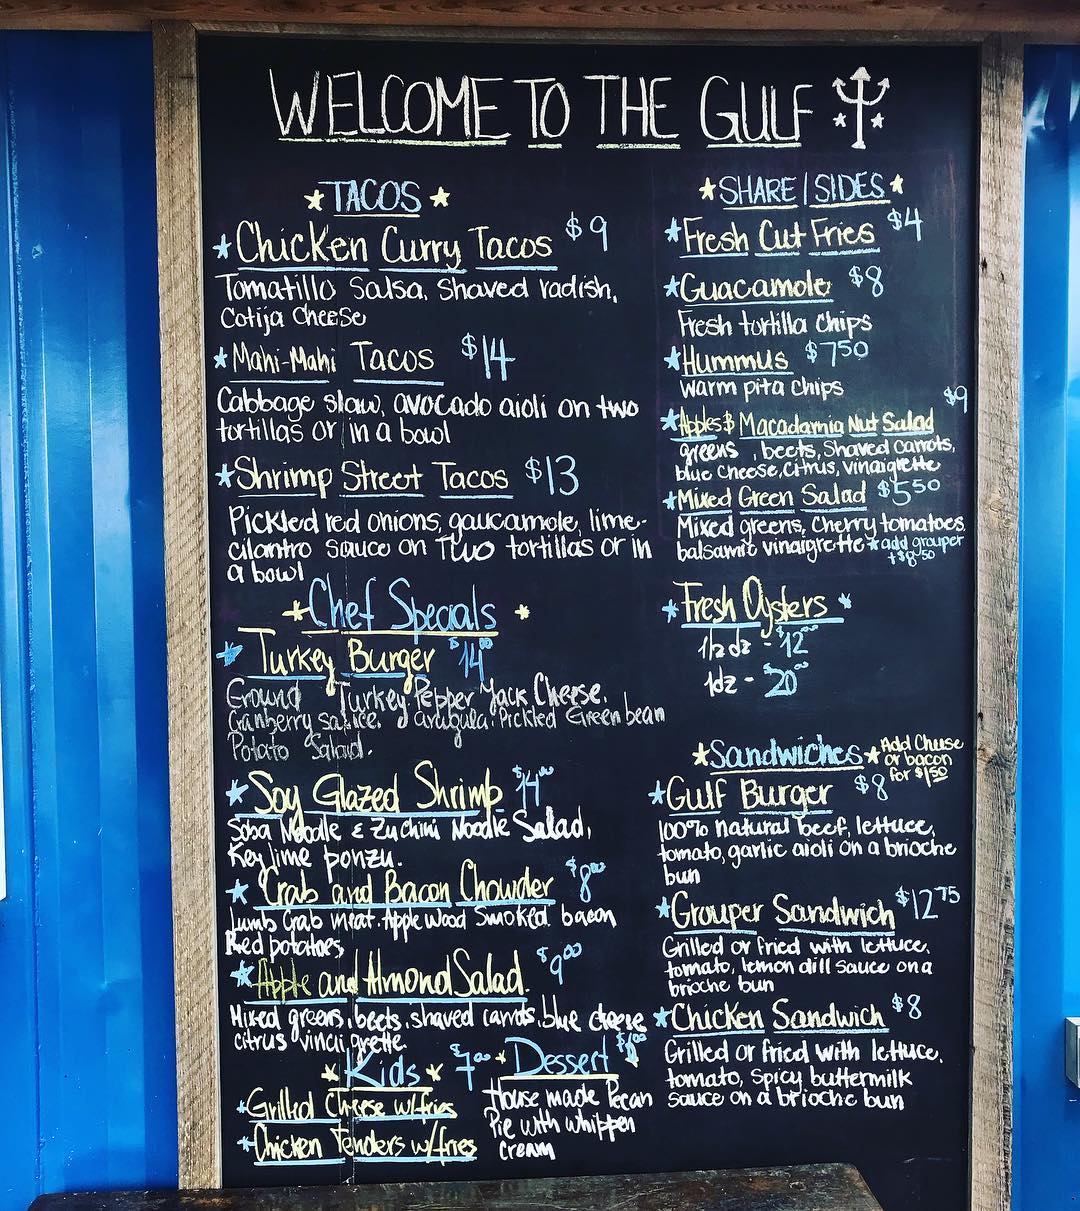 WELCOME TO THE GULF
TACOS
Chicken Curry Tacos $9
Tomatillo Salsa, Shaved radish,
Cotija Cheese
Mahi-Mahi Tacos $14
Cabbage slaw, avocado aioli on two
tortillas or in a bowl
Shrimp Street Tacos $13
Pickled red onions, gaucamole, lime-
cilantro sauce on Two tortillas or in
a bowl
Chef Specials
Turkey Burger $14.00
Ground Turkey Pepper Jack Cheese.
Cranberry sauce. arugula. Pickled Green bean
Potato Salad.
Soy Glazed Shrimp $14.00
Soba Noodle & Zuchini Noodle Salad,
Key lime ponzu.
Crab and Bacon Chowder $8.00
Lumb Crab meat. Apple Wood Smoked bacon
Red potatoes
Apple and Almond Salad. $9.00
Mixed greens, beets, shaved carrots, blue cheese
citrus vinaigrette
Kids $7.00
Grilled Cheese w/fries
Chicken Tenders w/fries
Dessert
House made Pecan
Pie with whippen
cream
SHARE | SIDES
Fresh Cut Fries $4
Guacamole $8
Fresh tortilla Chips
Hummus $7.50
Warm pita chips
$9
Apples & Macadamia Nut Salad
greens, beets, Shaved Carrots,
blue Cheese, Citrus, vinaigrette
Mixed Green Salad $5.50
Mixed greens, Cherry tomatoes
balsamic vinaigrette * add grouper
+$8.50
Fresh Oysters
1/2 dz - $12.00
1dz - $20.00
Sandwiches * Add Cheese
or bacon
for $1.50
Gulf Burger $8
100% natural beef, lettuce,
tomato, garlic aioli on a brioche
bun
Grouper Sandwich $12.75
Grilled or fried with lettuce,
tomato, lemon dill sauce on a
brioche bun
Chicken Sandwich $8
Grilled or fried with lettuce,
tomato, spicy buttermilk
sauce on a brioche bun